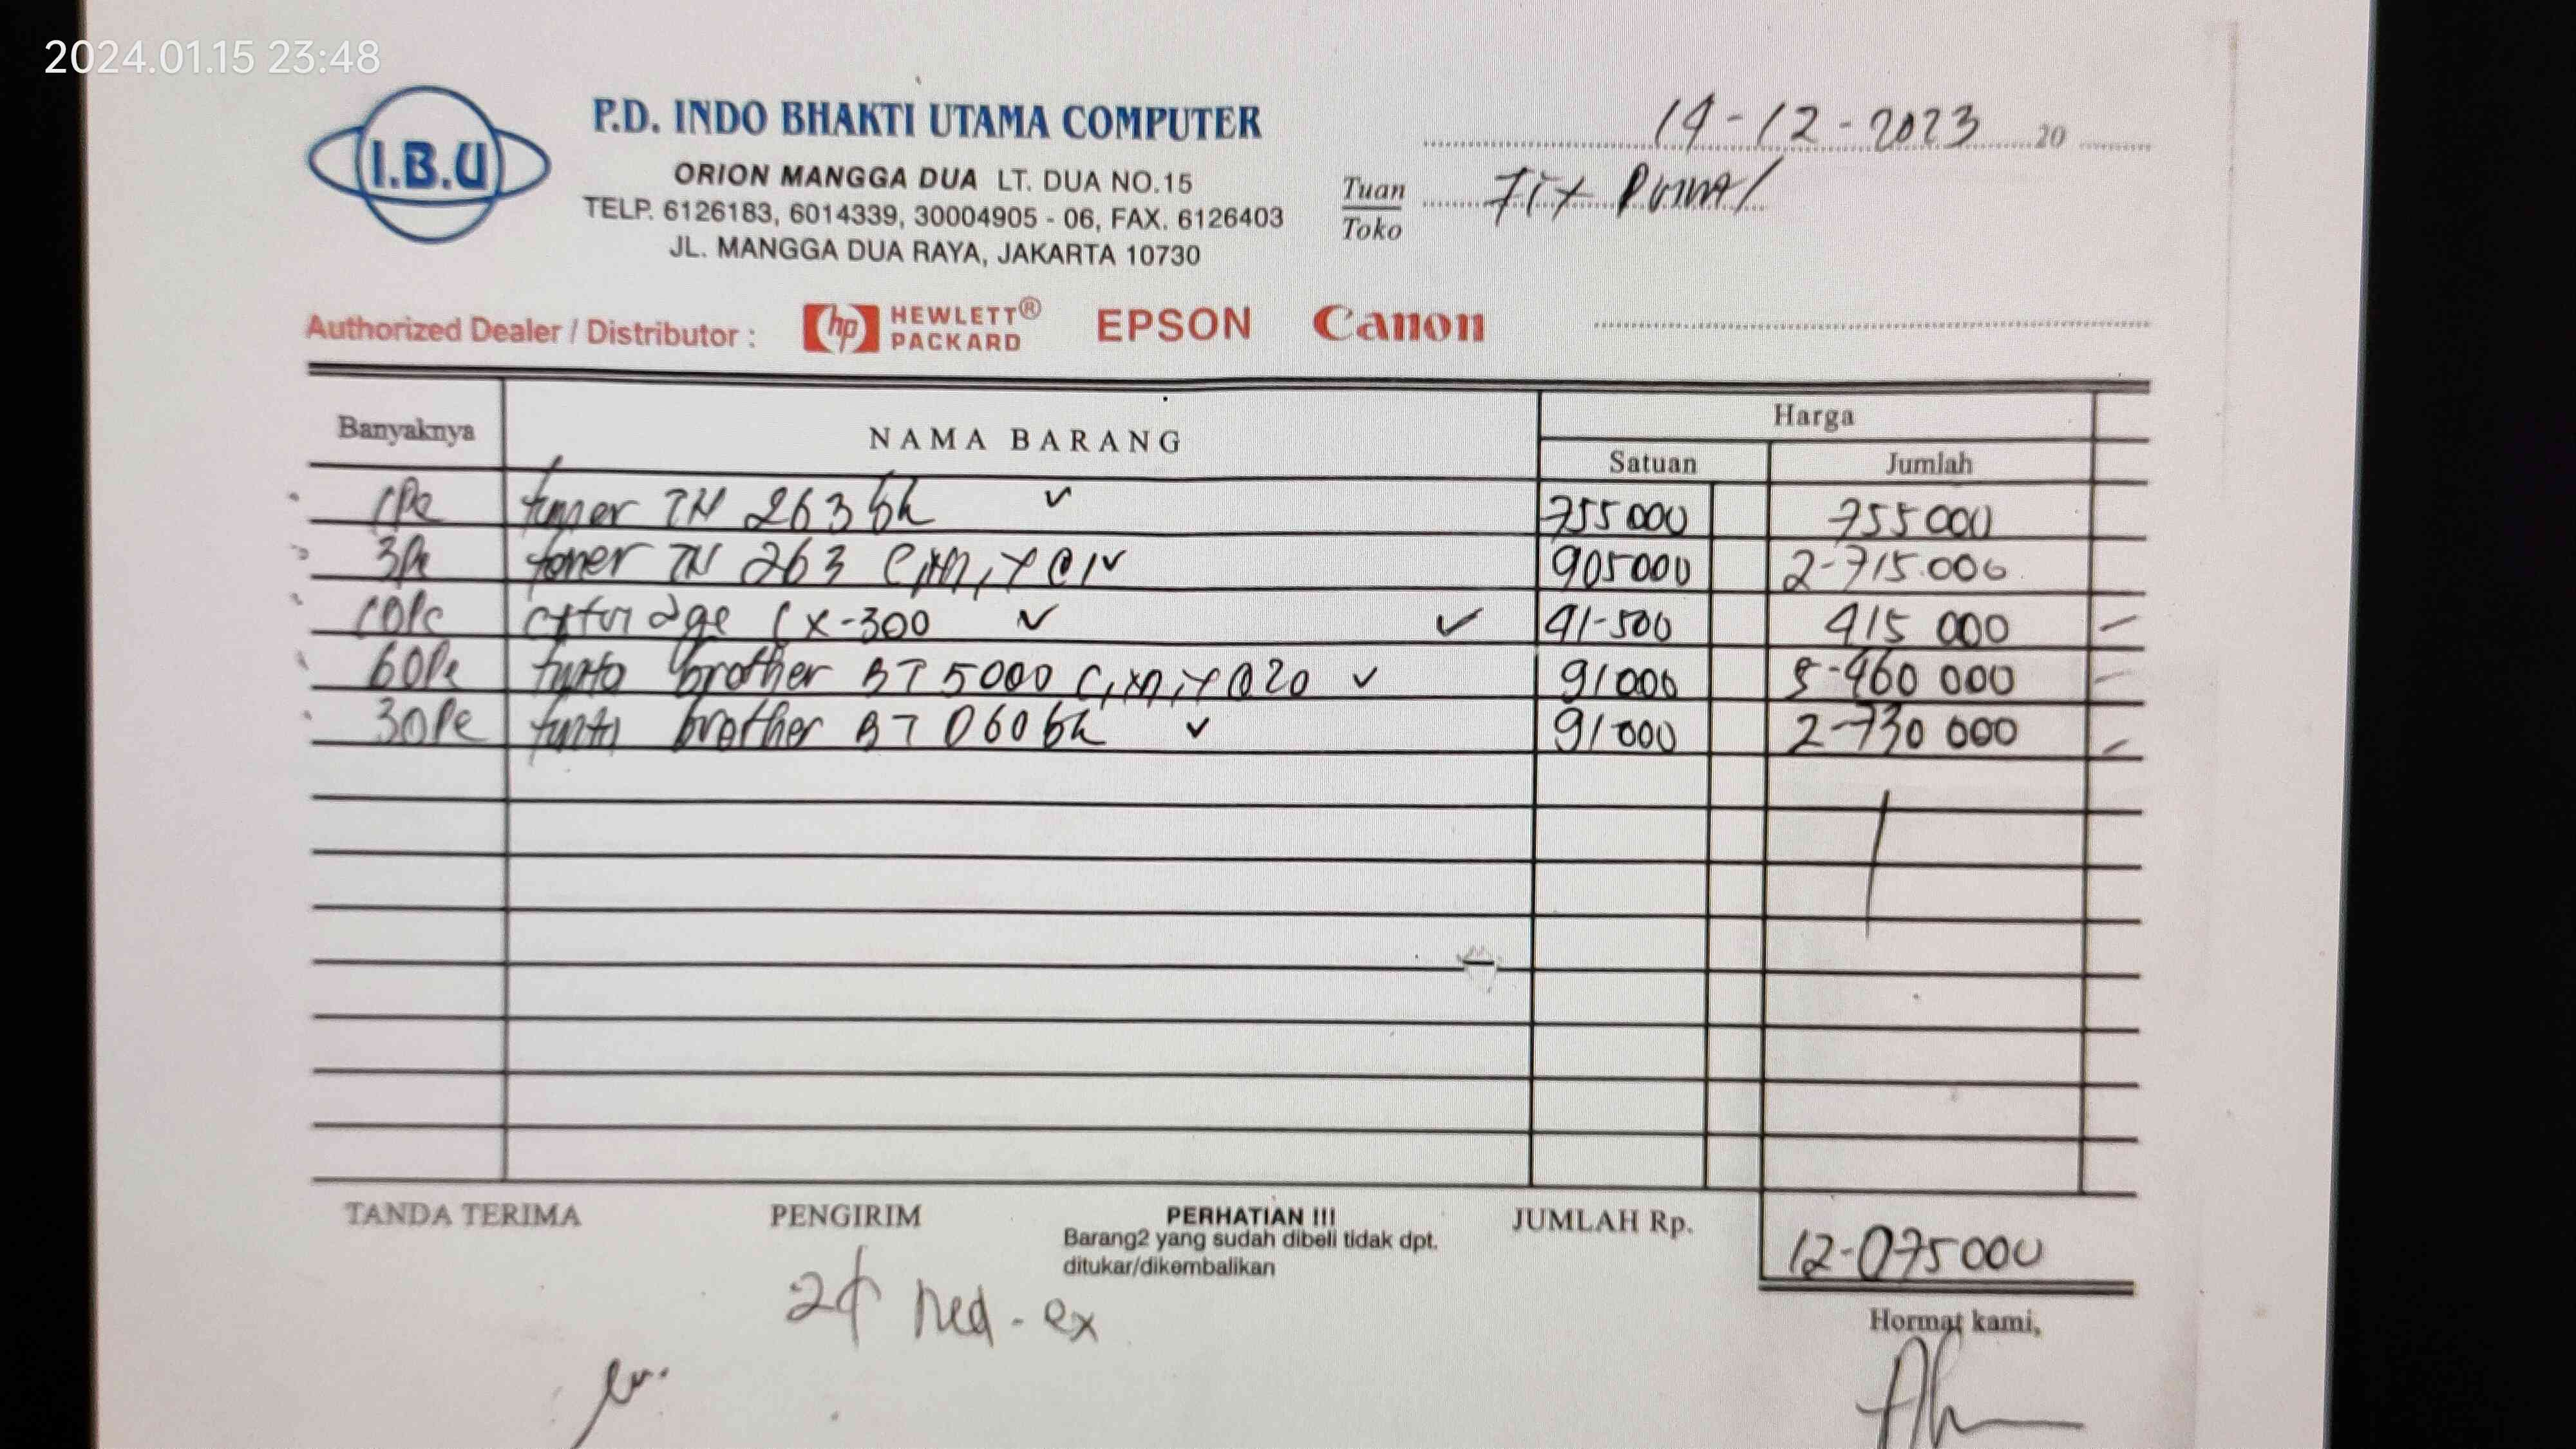 2024.01.15 23:48
I.B.U
P.D. INDO BHAKTI UTAMA COMPUTER
ORION MANGGA DUA LT. DUA NO.15
TELP. 6126183, 6014339, 30004905 - 06, FAX. 6126403
JL. MANGGA DUA RAYA, JAKARTA 10730
14-12-2023 20
Tuan
Toko
Authorized Dealer / Distributor : hp HEWLETT® PACKARD EPSON Canon
Banyaknya NAMA BARANG Harga
Satuan Jumlah
1Pc toner TN 263 bk 755000 755000
3Pc toner TN 263 C,M,Y @1 905000 2-715.000
10Pc CX-300 41-500 415 000
60Pc brother BT 5000 C,M,Y @20 91000 5-460 000
30Pc brother BT D60 bk 91000 2-730 000
TANDA TERIMA PENGIRIM PERHATIAN III JUMLAH Rp. 12-075000
Barang2 yang sudah dibeli tidak dpt.
ditukar/dikembalikan
Hormat kami,